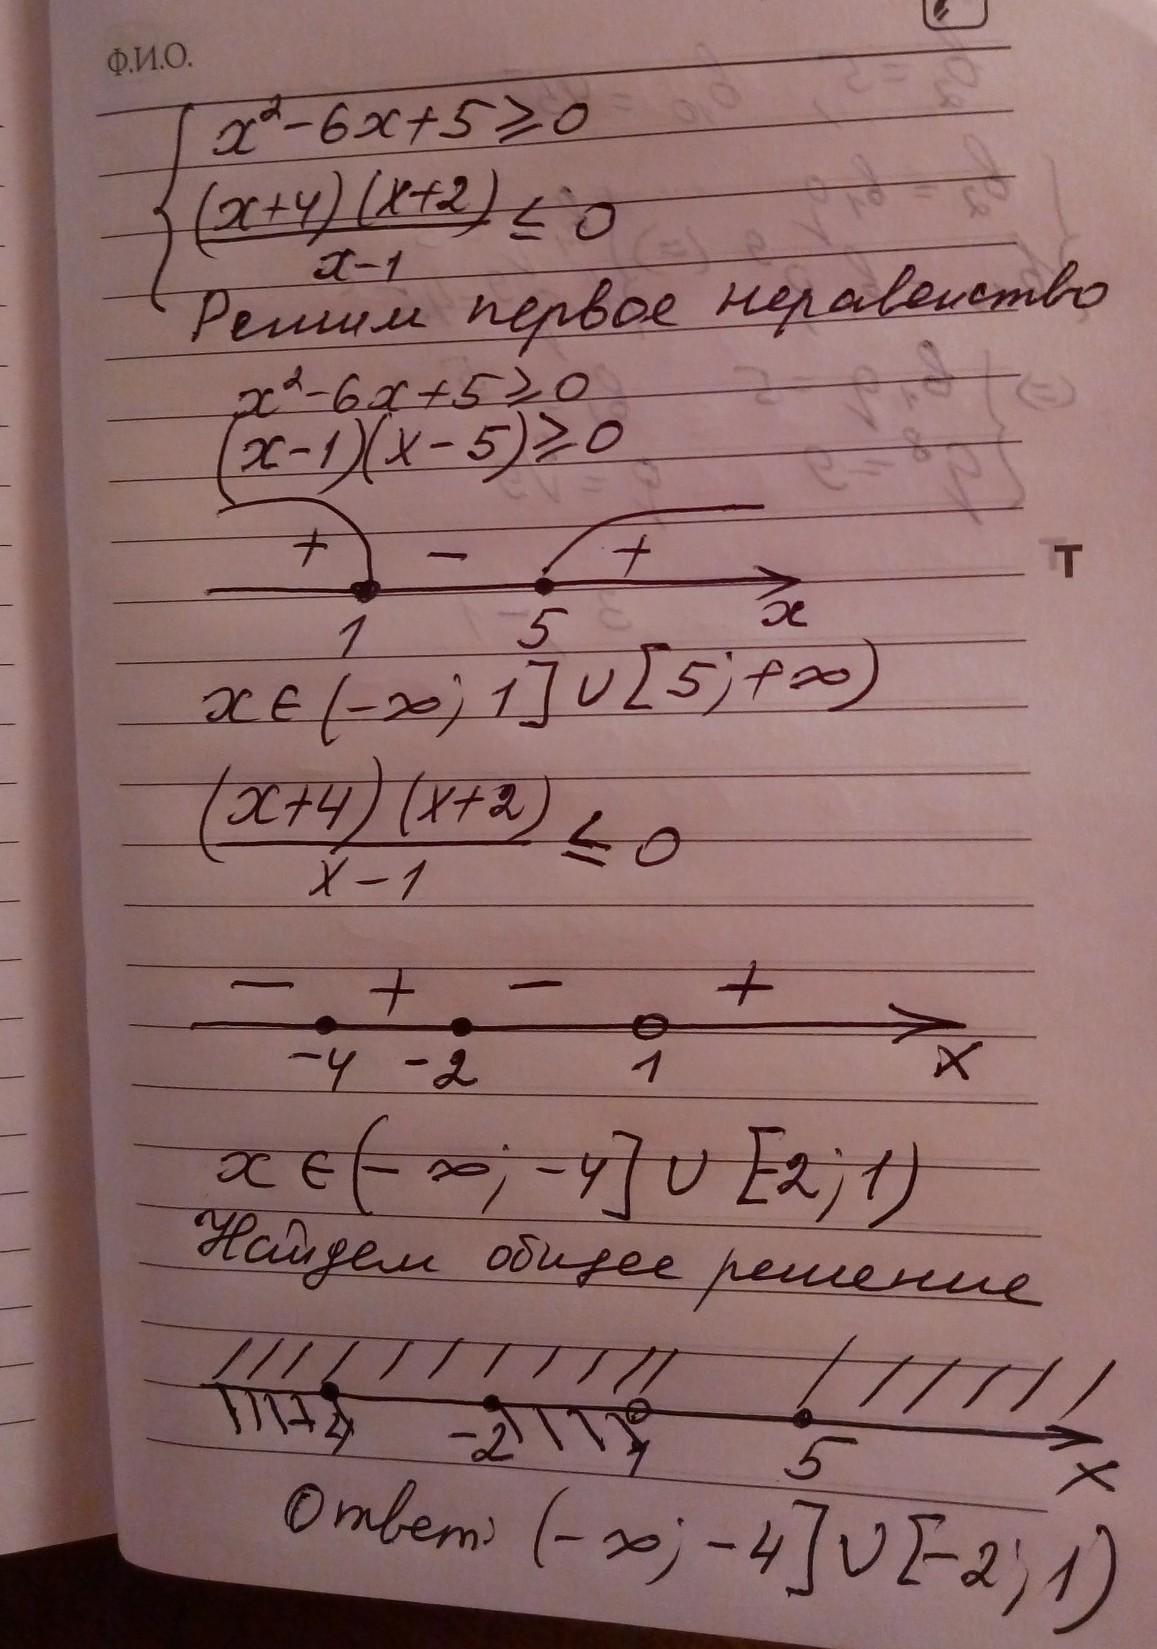 Ф.И.О.
x² - 6x + 5 ≥ 0
(x+4)(x+2)
≤ 0
x-1
Решим первое неравенство
x² - 6x + 5 ≥ 0
(x-1)(x-5) ≥ 0
+ - +
1 5 x
x ∈ (-∞; 1] ∪ [5; +∞)
(x+4)(x+2)
≤ 0
x-1
- + - +
-4 -2 1 x
x ∈ (-∞; -4] ∪ [-2; 1)
Найдем общее решение
-4 -2 1 5 x
Ответ: (-∞; -4] ∪ [-2; 1)
T